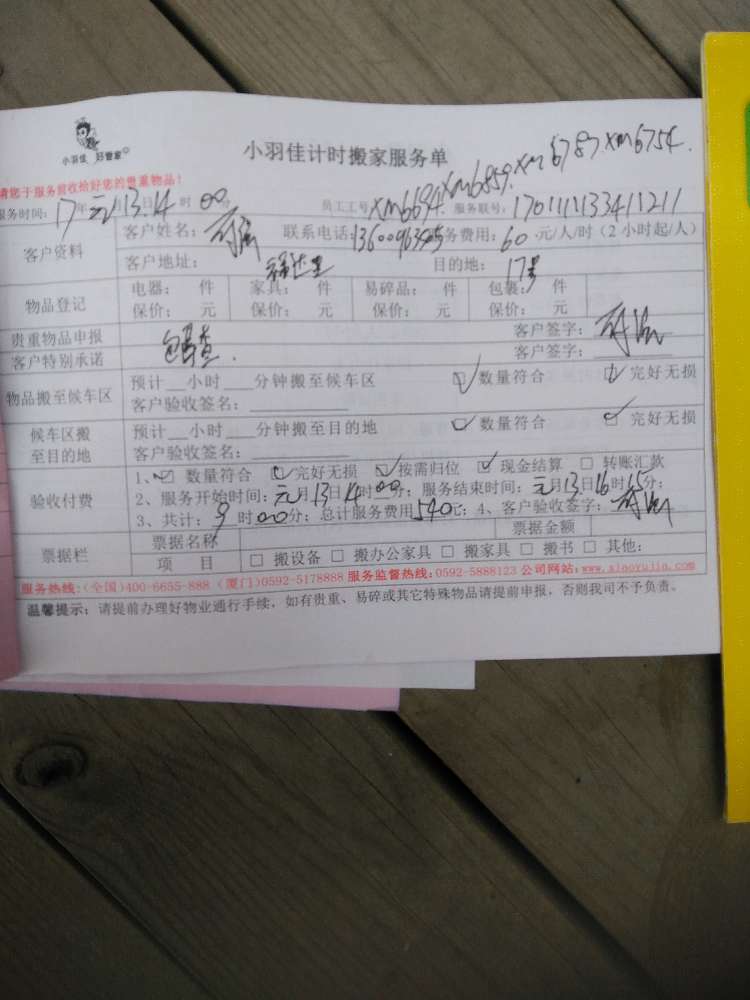 小羽佳 好管家
小羽佳计时搬家服务单
请您于服务前收给好您的贵重物品!
服务时间: 17年 元月13日14时00分 员工工号 xm6694 xm6859 xm6787 xm6754 服务联号: 1701111133411211
客户资料 客户姓名: 联系电话: 服务费用: 60 元/人/时(2小时起/人)
客户地址: 目的地: 17号
物品登记 电器: 件 家具: 件 易碎品: 件 包裹: 件
保价: 元 保价: 元 保价: 元 保价: 元
贵重物品申报 客户签字:
客户特别承诺 客户签字:
物品搬至候车区 预计__小时__分钟搬至候车区 数量符合 完好无损
客户验收签名:
候车区搬至目的地 预计__小时__分钟搬至目的地 数量符合 完好无损
客户验收签名:
验收付费 1、 数量符合 完好无损 按需归位 现金结算 转账汇款
2、服务开始时间: 元月13日14时00分; 服务结束时间: 元月13日16时15分;
3、共计: 9时00分; 总计服务费用540元; 4、客户验收签字:
票据栏 票据名称 票据金额
项目 搬设备 搬办公家具 搬家具 搬书 其他:
服务热线:(全国)400-6655-888 (厦门)0592-5178888 服务监督热线:0592-5888123 公司网站:www.xiaoyujia.com
温馨提示: 请提前办理好物业通行手续, 如有贵重、易碎或其它特殊物品请提前申报, 否则我司不予负责。